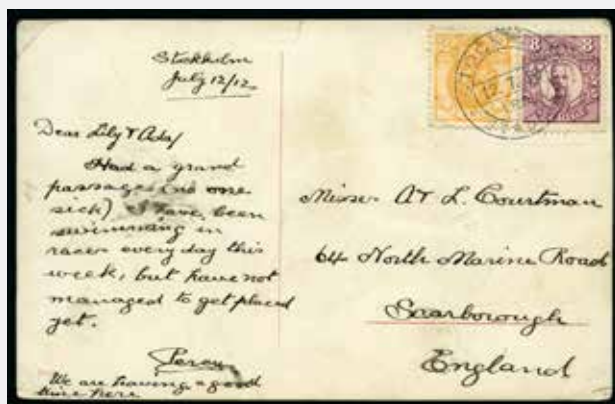 Stockholm
July 12/12.
Dear Lily & Ada/
Had a grand
passage (no one
sick) I have been
swimming in
races every day this
week, but have not
managed to get placed
yet.
Percy
We are having a good
time here
8 8
Misses A & L. Courtman
64 North Marine Road
Scarborough
England